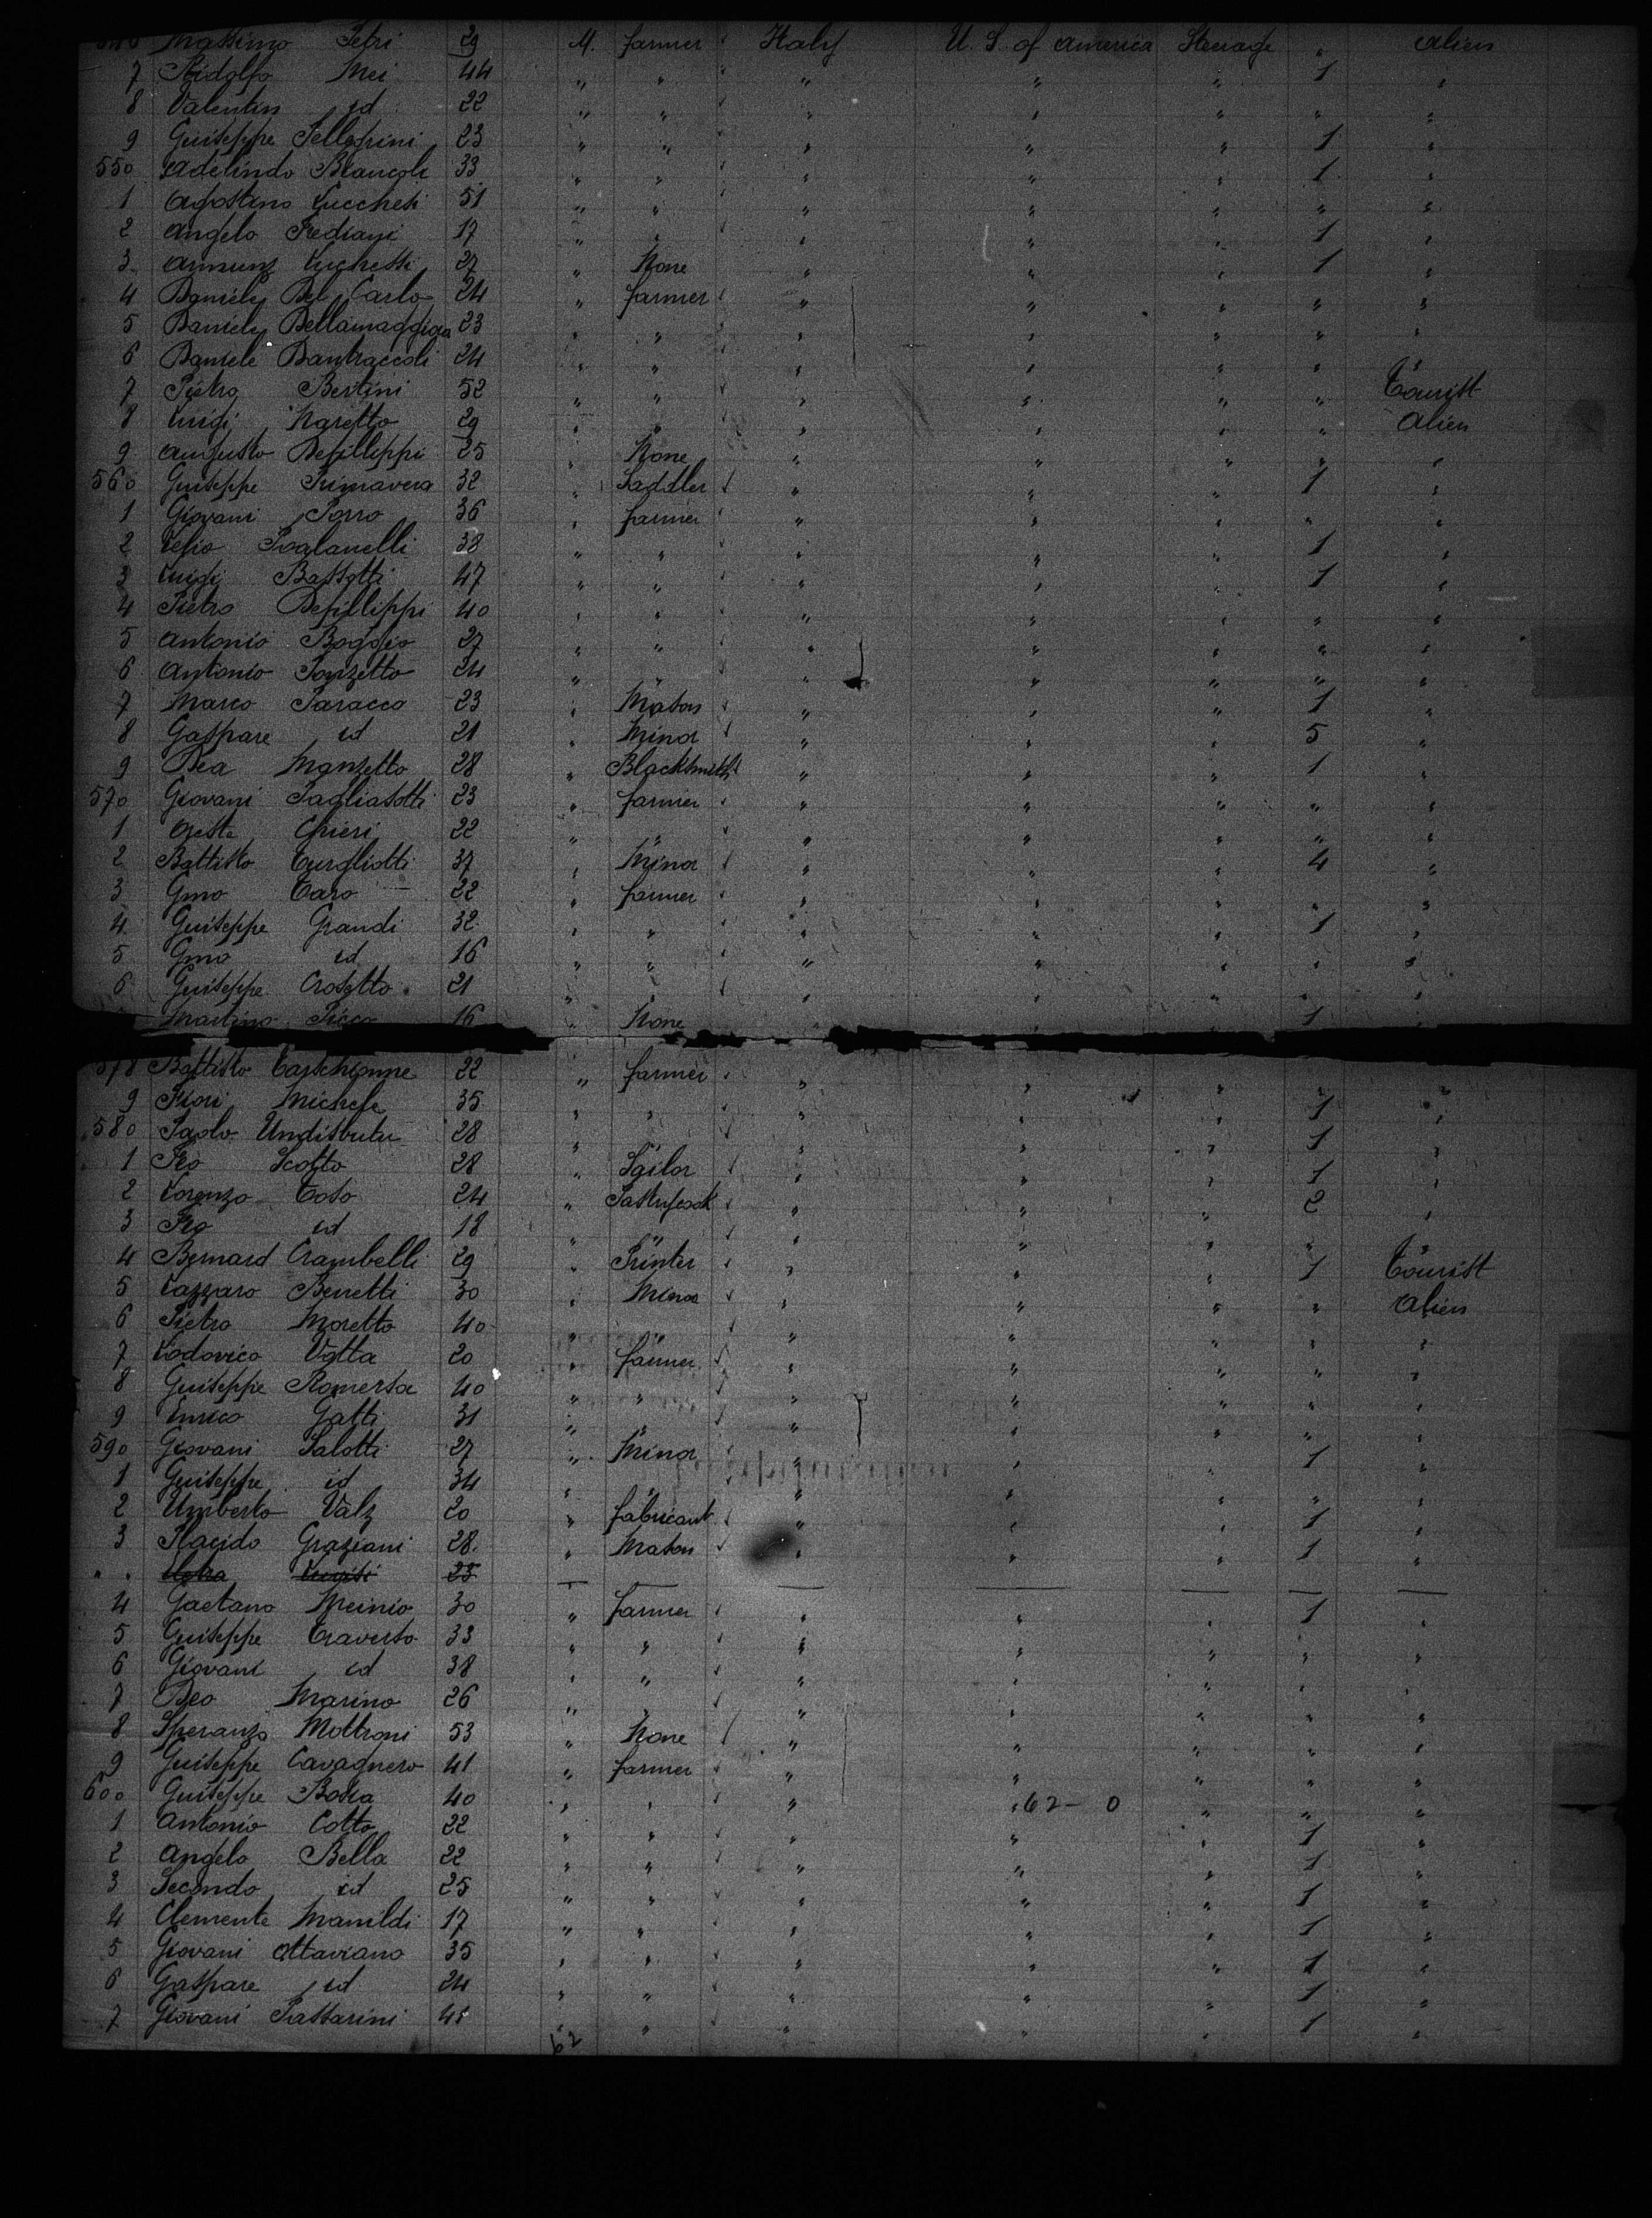 546 Massimo Petri 29 M. farmer Italy U. S. of America Steerage " Alien
7 Ridolfo Mei 44 " " " " " 1 "
8 Valentin id 22 " " " " " " "
9 Guiseppe Pellegrini 23 " " " " " 1 "
550 Adelindo Biancoli 33 " " " " " 1 "
1 Agostino Lucchesi 51 " " " " " " "
2 Angelo Frediani 17 " " " " " 1 "
3 Lucchetti 27 " None " " " 1 "
4 Daniele Del Carlo 24 " farmer " " " " "
5 Daniele Dellamaggiora 23 " " " " " " "
6 Daniele 24 " " " " " " "
7 Pietro Bertini 52 " " " " " " Tourist
8 Luigi Naretto 29 " " " " " " Alien
9 Augusto Defillippi 25 " None " " " " "
560 Guiseppe Primavera 32 " Saddler " " " 1 "
1 Giovani Porro 36 " farmer " " " " "
2 38 " " " " " 1 "
3 Luigi Bassotti 47 " " " " " 1 "
4 Pietro Defillippi 40 " " " " " " "
5 Antonio Boggio 27 " " " " " " "
6 Antonio Ponzetto 24 " " " " " " "
7 Marco Saracco 23 " Mason " " " 1 "
8 Gaspare id 21 " Minor " " " 5 "
9 Manzetto 28 " Blacksmith " " " 1 "
570 Giovani Pagliasotti 23 " farmer " " " " "
1 Oreste Chieri 22 " " " " " " "
2 Battisto 37 " Minor " " " 4 "
3 Gmo Caro 22 " farmer " " " " "
4 Guiseppe Grandi 32 " " " " " 1 "
5 Gmo id 16 " " " " " " "
6 Guiseppe Crosetto 21 " " " " " " "
Martino Picco 16 " None " " " 1 "
578 Battisto 22 " farmer " " " " "
9 Fiori Michele 35 " " " " " 1 "
580 Paolo 28 " " " " " 1 "
1 Fco Scotto 28 " Sailor " " " 1 "
2 Lorenzo Toso 24 " Pastrycook " " " 2 "
3 Fco id 18 " " " " " " "
4 Bernard Crambelli 29 " Printer " " " 1 Tourist
5 Lazzaro Benetti 30 " Minor " " " " Alien
6 Pietro Moretto 40 " " " " " " "
7 Lodovico Votta 20 " farmer " " " " "
8 Guiseppe Romersa 40 " " " " " " "
9 Enrico Gatti 31 " " " " " " "
590 Giovani Salotti 27 " Minor " " " 1 "
1 Guiseppe id 34 " " " " " " "
2 Umberto Valz 20 " fabricant " " " 1 "
3 Placido Graziani 28 " Mason " " " 1 "
" " 25 — — — — — —
4 Gaetano 30 " farmer " " " 1 "
5 Guiseppe Traverso 33 " " " " " " "
6 Giovani id 38 " " " " " " "
7 Marino 26 " " " " " " "
8 Speranzo Mottroni 53 " None " " " " "
9 Guiseppe Cavagnero 41 " farmer " " " " "
600 Guiseppe Bosia 40 " " " " 62 – 0 " " "
1 Antonio Cotto 22 " " " " " 1 "
2 Angelo Bella 22 " " " " " 1 "
3 Secondo id 25 " " " " " 1 "
4 Clemente Manildi 17 " " " " " 1 "
5 Giovani Ottaviano 35 " " " " " 1 "
6 Gaspare id 24 " " " " " 1 "
7 Giovani Passarini 45 " " " " " 1 "
62